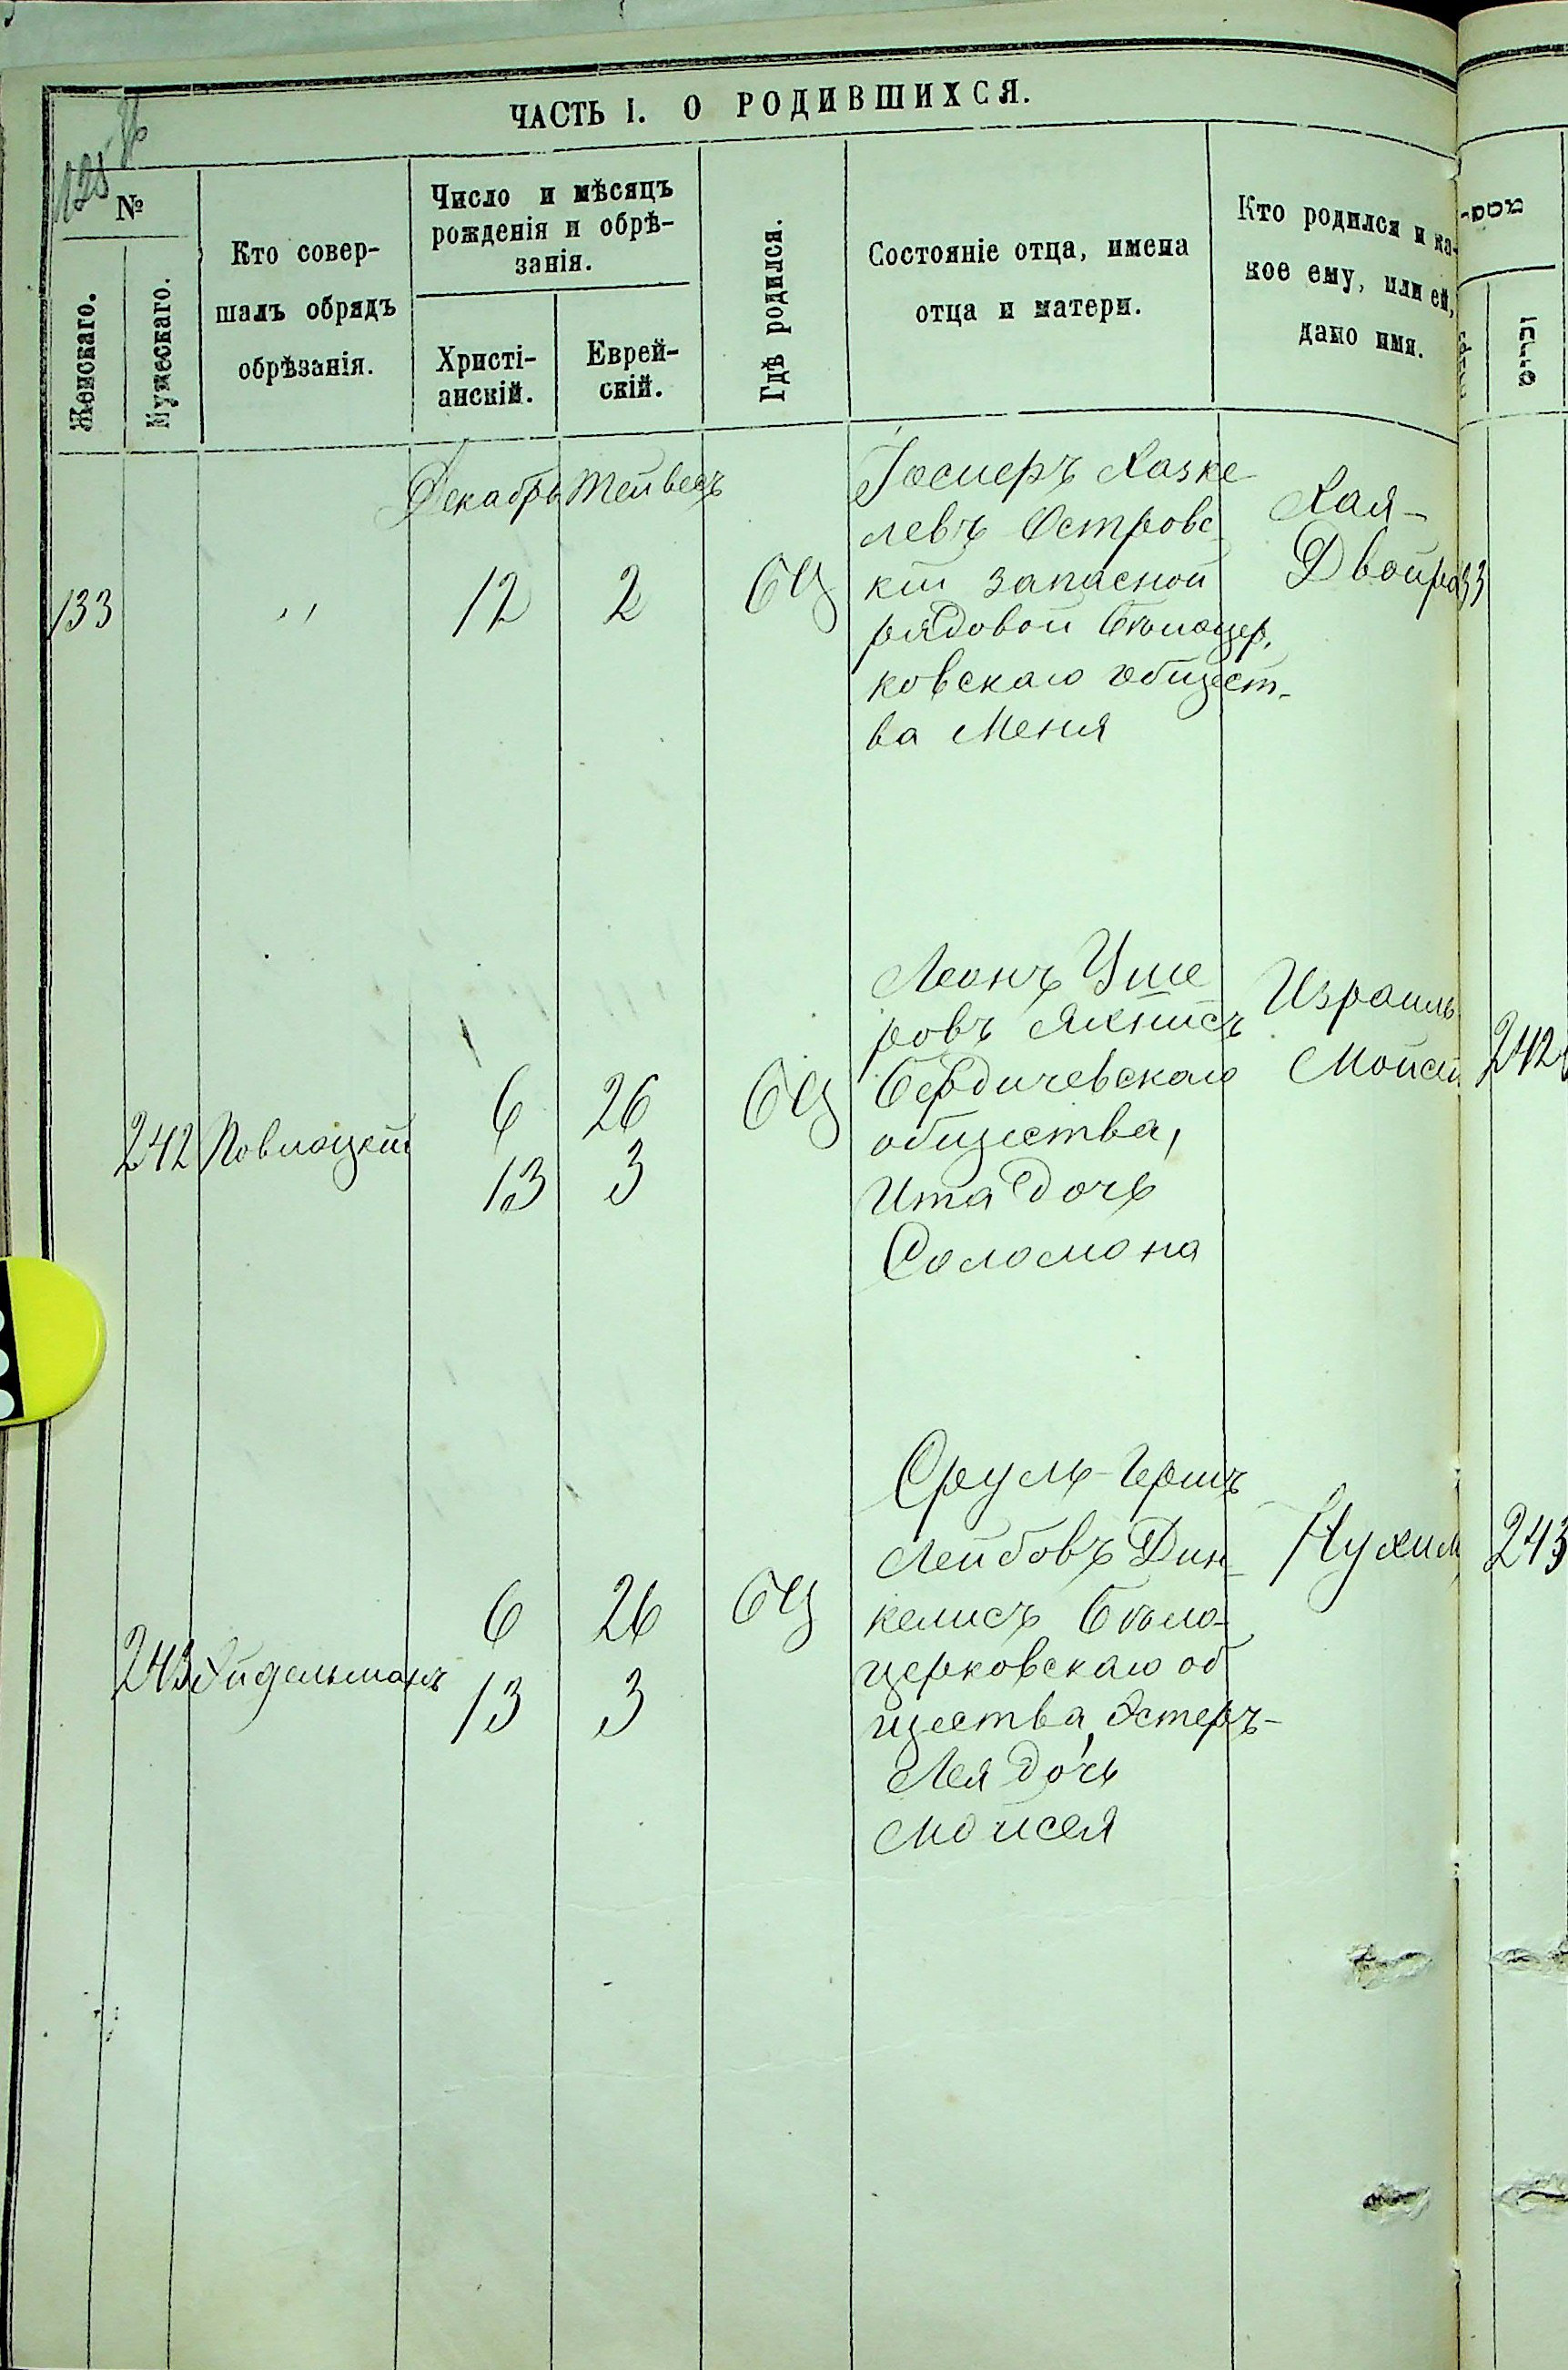 ЧАСТЬ I. О РОДИВШИХСЯ.
125
№
Женскаго.
Мужескаго.
Кто совер-
шалъ обрядъ
обрѣзанія.
Число и мѣсяцъ
рожденія и обрѣ-
занія.
Христі-
анскій.
Еврей-
скій.
Гдѣ родился.
Состояніе отца, имена
отца и матери.
Кто родился и ка-
кое ему, или ей,
дано имя.
Декабрь Тейвесъ
133
"
12
2
БЦ
Іосиеръ Хазке
левъ Островс
кій запасной
рядовой Бѣлоцер.
ковскаго общест-
ва Меня
Хая-
Двойра
33
242
Повлоцкій
6
13
26
3
БЦ
Леонъ Уше
ровъ Яхнисъ
Бердичевскаго
общества,
Ита дочь
Соломона
Израиль
Мойсей
242
243
Эйдельманъ
6
13
26
3
БЦ
Сруль-Гершъ
Лейбовъ Дин-
келисъ Бѣло-
церковскаго об
щества, Эстеръ-
Лея дочь
Мойсея
Нухим
243